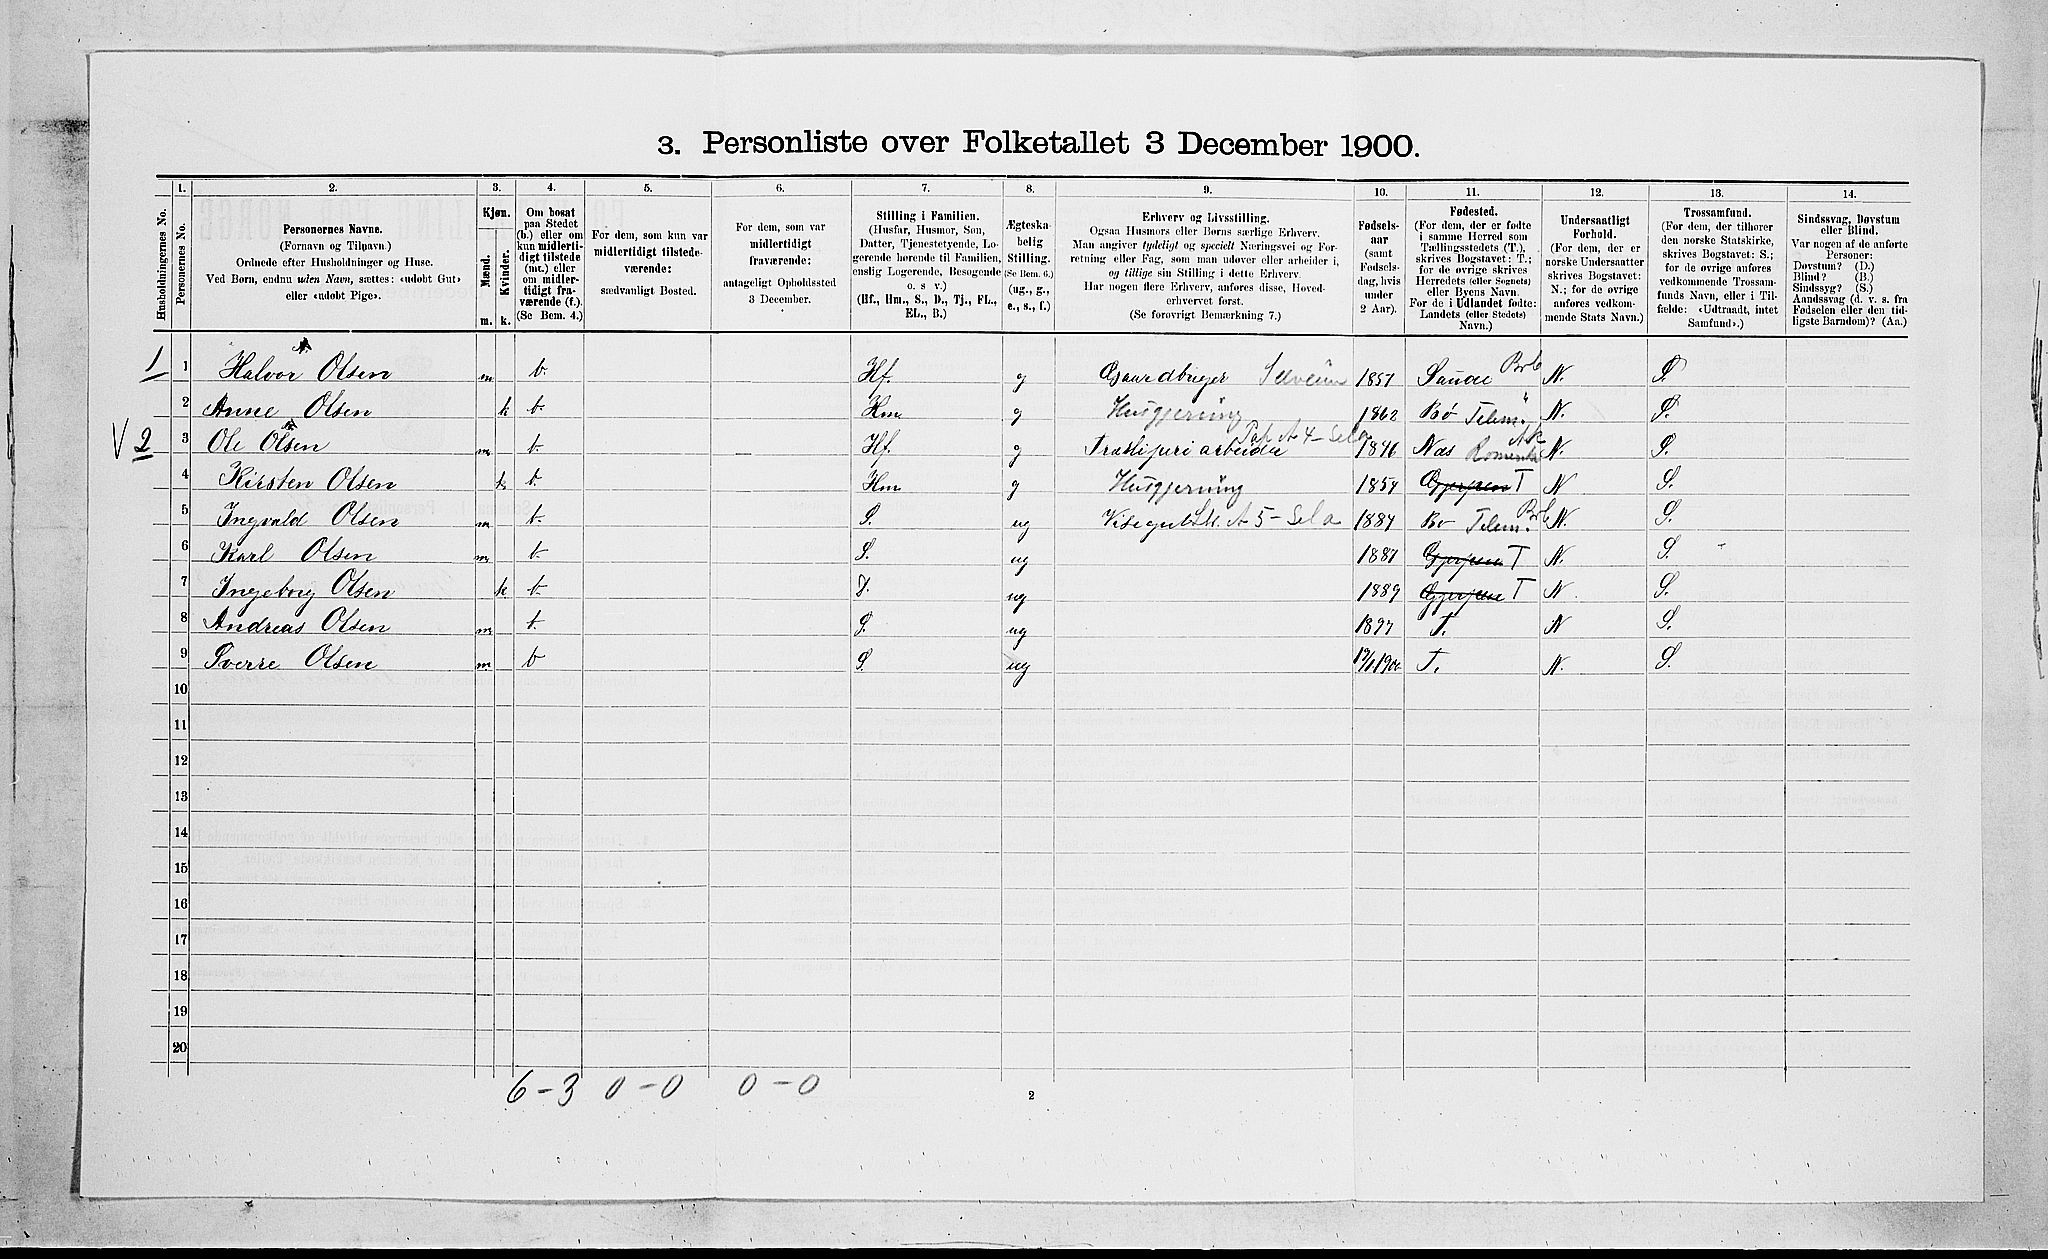 3. Personliste over Folketallet 3 December 1900.
1. 2. 3. 4. 5. 6. 7. 8. 9. 10. 11. 12. 13. 14.
Husholdningernes No.
Personernes No.
Personernes Navne.
(Fornavn og Tilnavn.)
Ordnede efter Husholdninger og Huse.
Ved Børn, endnu uden Navn, sættes: «udøbt Gut»
eller «udøbt Pige».
Kjøn.
Mænd.
Kvinder.
m. k.
Om bosat
paa Stedet
(b.) eller om
kun midlerti-
digt tilstede
(mt.) eller
om midler-
tidigt fra-
værende (f.).
(Se Bem. 4.)
For dem, som kun var
midlertidigt tilstede-
værende:
sædvanligt Bosted.
For dem, som var
midlertidigt
fraværende:
antageligt Opholdssted
3 December.
Stilling i Familien.
(Husfar, Husmor, Søn,
Datter, Tjenestetyende, Lo-
gerende hørende til Familien,
enslig Logerende, Besøgende
o. s. v.)
(Hf., Hm., S., D., Tj., FL.,
EL., B.)
Ægteska-
belig
Stilling.
(Se Bem. 6.)
(ug., g.,
e., s., f.)
Erhverv og Livsstilling.
Ogsaa Husmors eller Børns særlige Erhverv.
Man angiver tydeligt og specielt Næringsvei og For-
retning eller Fag, som man udøver eller arbeider i,
og tillige sin Stilling i dette Erhverv.
Har nogen flere Erhverv, anføres disse, Hoved-
erhvervet først.
(Se forøvrigt Bemærkning 7.)
Fødsels-
aar
(samt
Fødsels-
dag, hvis
under
2 Aar).
Fødested.
(For dem, der er fødte
i samme Herred som
Tællingsstedets (T.),
skrives Bogstavet: T.;
for de øvrige skrives
Herredets (eller Sognets)
eller Byens Navn.
For de i Udlandet fødte:
Landets (eller Stedets)
Navn.)
Undersaatligt
Forhold.
(For dem, der er
norske Undersaatter
skrives Bogstavet:
N.; for de øvrige
anføres vedkom-
mende Stats Navn.)
Trossamfund.
(For dem, der tilhører
den norske Statskirke,
skrives Bogstavet: S.;
for de øvrige anføres
vedkommende Trossam-
funds Navn, eller i Til-
fælde: «Udtraadt, intet
Samfund».)
Sindssvag, Døvstum
eller Blind.
Var nogen af de anførte
Personer:
Døvstum? (D.)
Blind? (B.)
Sindssyg? (S.)
Aandssvag (d. v. s. fra
Fødselen eller den tid-
ligste Barndom)? (Aa.)
1 1 Halvor Olsen m b. Hf. g Gaardbruger Selveier 1851 Saude Brb N. S.
2 Anne Olsen k b. Hm g Husgjerning 1862 Bø Telem. " N. S.
V 2 3 Ole Olsen m b. Hf. g Træsliperiarbeider Pap A 4 - Sela 1846 Næs Romerike Ak N. S.
4 Kirsten Olsen k b. Hm g Husgjerning 1854 Gjerpen T N S.
5 Ingvald Olsen m b. S. ug Visergut A 5 - Sela 1884 Bø Telem. Brb N. S.
6 Karl Olsen m b. S. ug 1887 Gjerpen T N. S.
7 Ingeborg Olsen k b. D. ug 1889 Gjerpen T N. S.
8 Andreas Olsen m b. S. ug 1897 T. N S.
9 Sverre Olsen m b S. ug 1900 T. N. S.
10
11
12
13
14
15
16
17
18
19
20
6 - 3 0 - 0 0 - 0
2